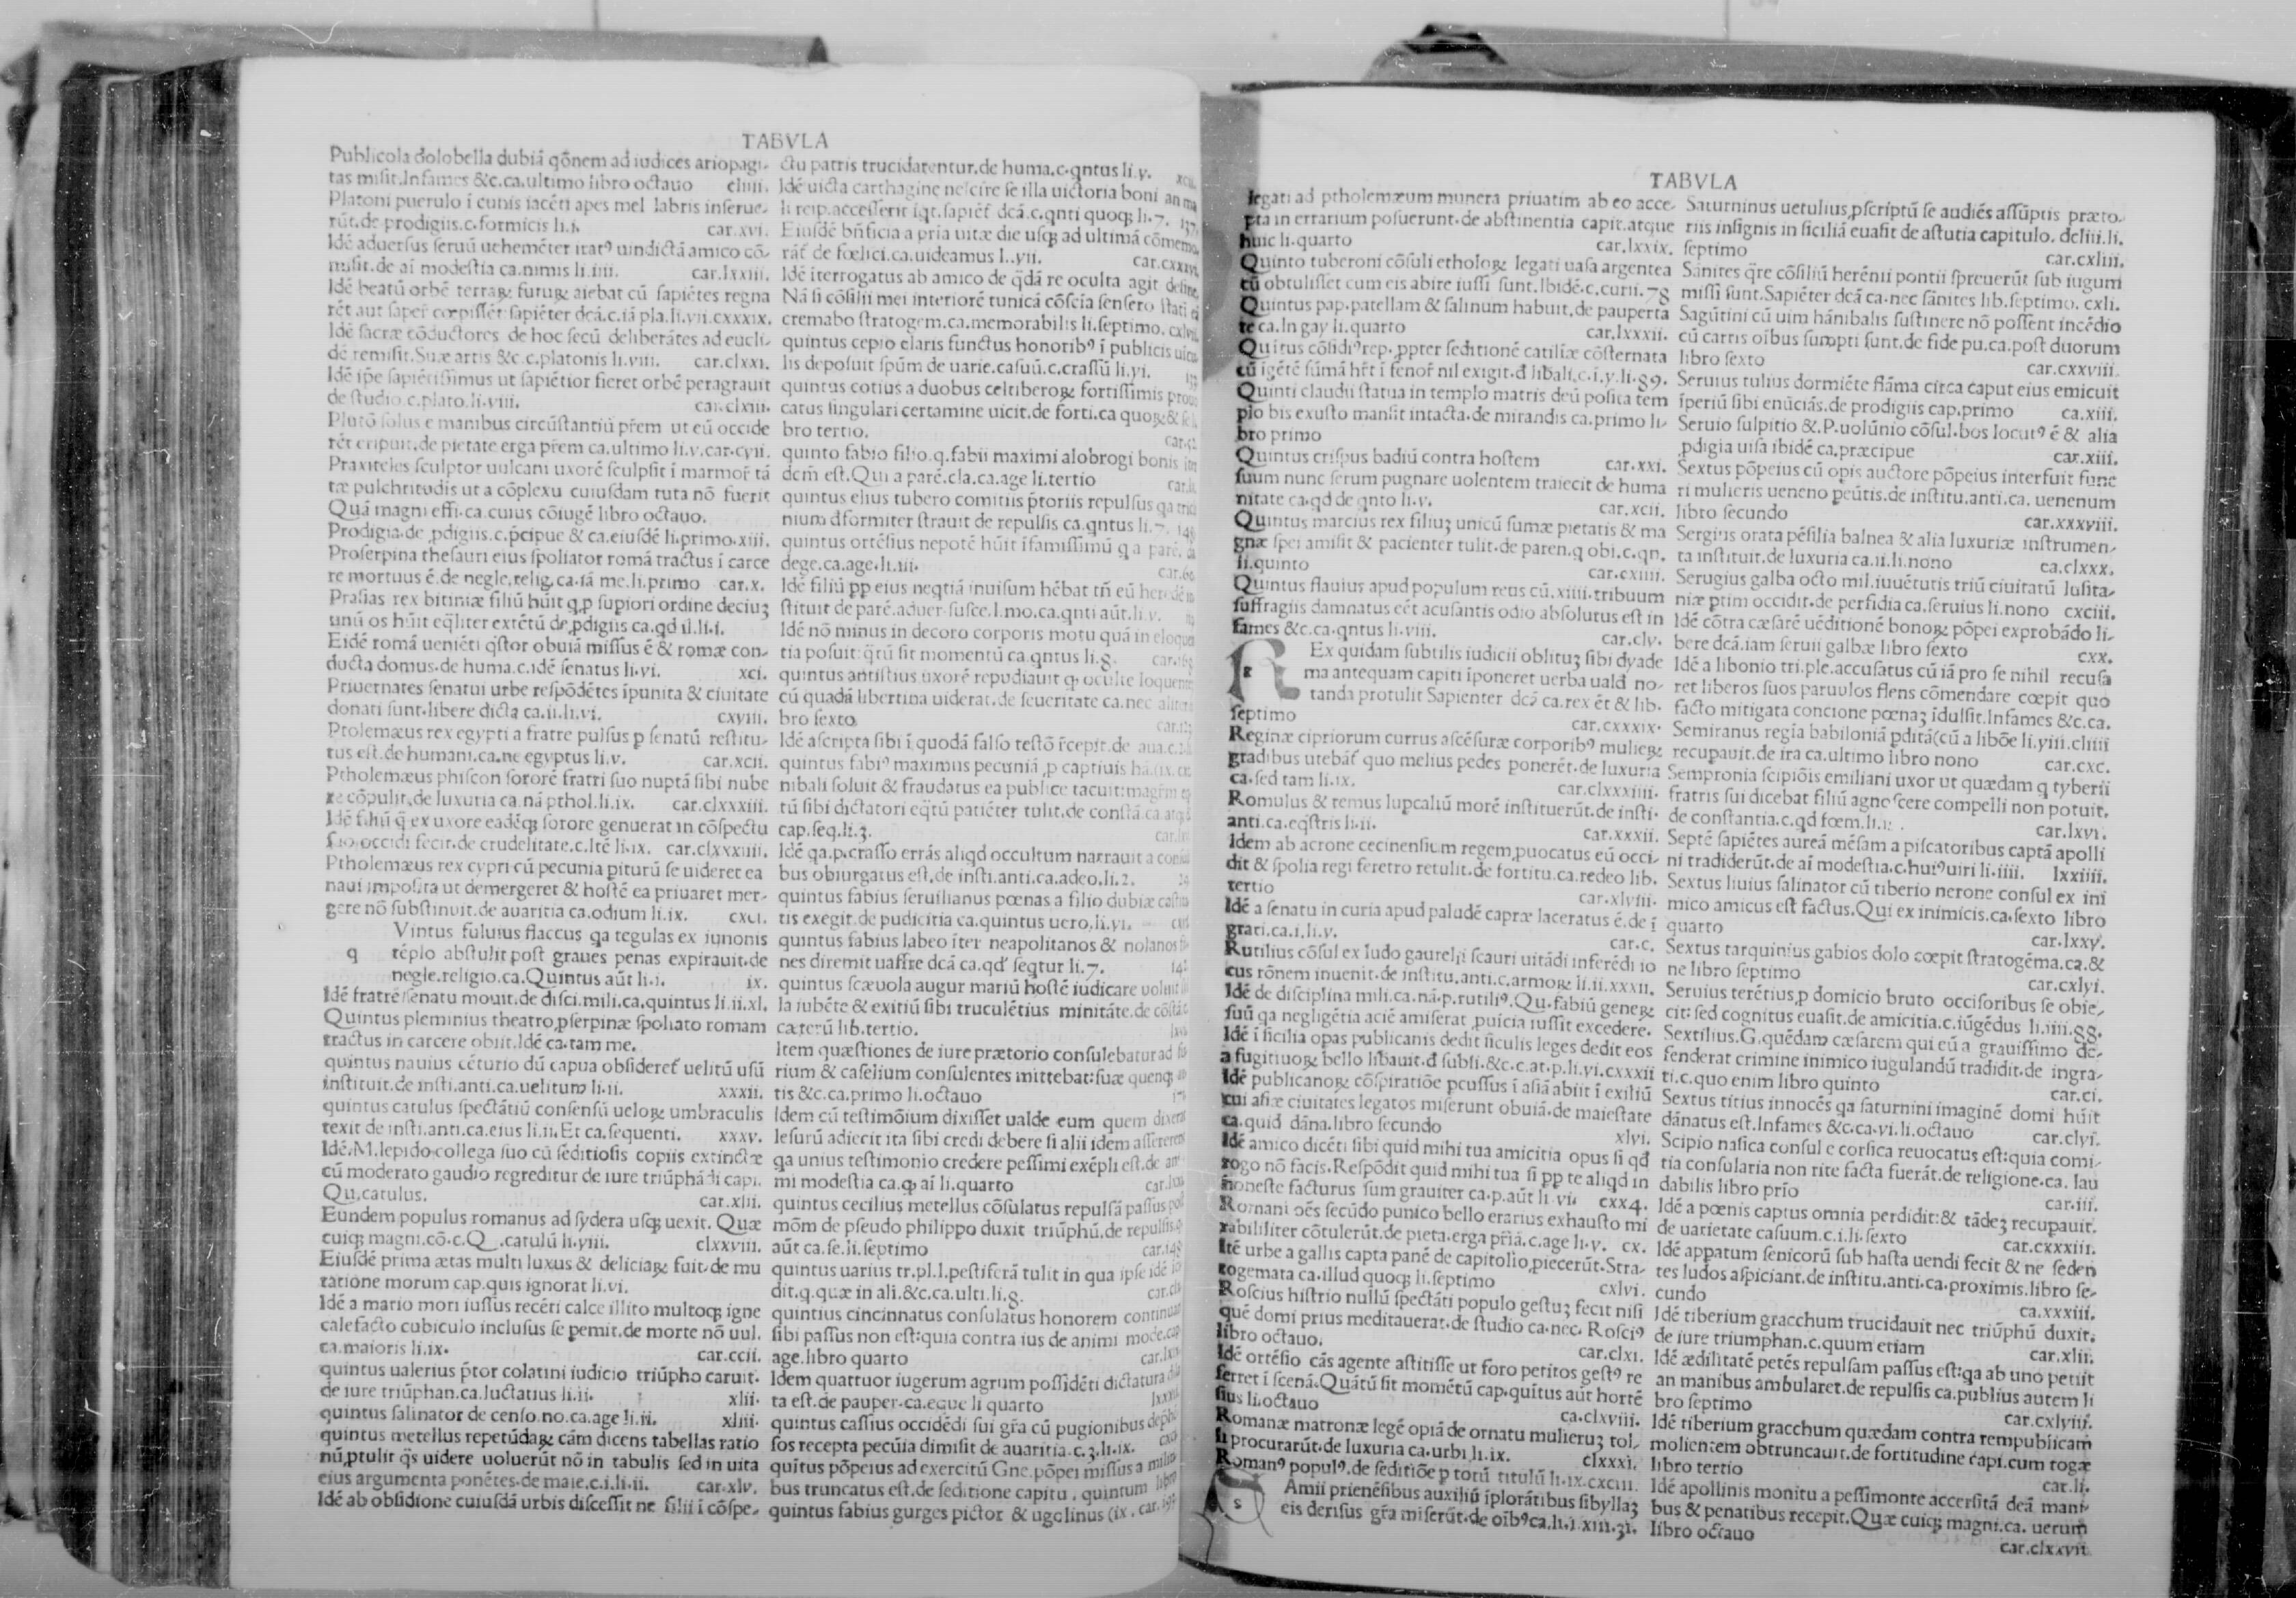 TABVLA
Publicola dolobella dubiā qōnem ad iudices ariopagi-
tas misit.Infames &c.ca.ultimo libro octauo cliiii.
Platoni puerulo ī cunis iacēti apes mel labris inserue-
rūt.de prodigiis.c.formicis li.i. car.xvi.
Idē aduersus seruū uehemēter iratꝰ uindictā amico cō-
misit.de aī modestia ca.nimis li.iiii. car.lxxiii.
Idē beatū orbē terraꝝ futuꝝ aiebat cū sapiētes regna
rēt aut saper cœpissēt:sapiēter dcā.c.iā pla.li.vii.cxxxix.
Idē sacræ cōductores de hoc secū deliberātes ad eucli-
dē remisit.Suæ artis &c.c.platonis li.viii. car.clxxi.
Idē ip̄e sapiētissimus ut sapiētior fieret orbē peragrauit
de studio.c.plato.li.viii. car.clxiii.
Plutō solus e manibus circūstantiū pr̄em ut eū occide
rēt eripuit.de pietate erga pr̄em ca.ultimo li.v.car.cvii.
Praxiteles sculptor uulcani uxorē sculpsit ī marmor̄ tā
tæ pulchritudis ut a cōplexu cuiusdam tuta nō fuerit
Quā magni effi.ca.cuius cōiugē libro octauo.
Prodigia.de ꝓdigiis.c.p̄cipue & ca.eiusdē li.primo.xiii.
Proserpina thesauri eius spoliator romā tractus ī carce
re mortuus ē.de negle.relig.ca.iā me.li.primo car.x.
Prasias rex bitiniæ filiū hūit q.p supiori ordine deciuʒ
unū os hūit eq̄liter extētū de.ꝓdigiis ca.qd il.li.i.
Eidē romā ueniēti q̄stor obuiā missus ē & romæ con-
ducta domus.de huma.c.idē senatus li.vi. xci.
Priuernates senatui urbe respōdētes īpunita & ciuitate
donati sunt.libere dicta ca.ii.li.vi. cxviii.
Ptolemæus rex egypti a fratre pulsus p senatū restitu-
tus est.de humani.ca.ne egyptus li.v. car.xcii.
Ptholemæus phiscon sororē fratri suo nuptā sibi nube
re cōpulit.de luxuria ca.nā pthol.li.ix. car.clxxxiii.
Idē filiū q̄ ex uxore eadēqꝫ sorore genuerat in cōspectu
suo occidi fecit.de crudelitate.c.Itē li.ix. car.clxxxiiii.
Ptholemæus rex cypri cū pecunia piturū se uideret ea
naui imposita ut demergeret & hostē ea priuaret mer-
gere nō substinuit.de auaritia ca.odium li.ix. cxci.
Vintus fuluius flaccus qa tegulas ex iunonis
q tēplo abstulit post graues penas expirauit.de
negle.religio.ca.Quintus aūt li.i. ix.
Idē fratrē senatu mouit.de disci.mili.ca.quintus li.ii.xl.
Quintus pleminius theatro ꝓserpinæ spoliato romam
tractus in carcere obiit.Idē ca.tam me.
quintus nauius cēturio dū capua obsideret̄ uelitū usū
instituit.de insti.anti.ca.uelitum li.ii. xxxii.
quintus catulus spectātiū consensū ueloꝝ umbraculis
texit de insti.anti.ca.eius li.ii.Et ca.sequenti. xxxv.
Idē.M.lepido collega suo cū seditiosis copiis extinctæ
cū moderato gaudio regreditur de iure triūphādi capi.
Qu.catulus. car.xlii.
Eundem populus romanus ad sydera usqꝫ uexit. Quæ
cuiqꝫ magni.cō.c.Q .catulū li.viii. clxxviii.
Eiusdē prima ætas multi luxus & deliciaꝝ fuit.de mu
tatione morum cap.quis ignorat li.vi.
Idē a mario mori iussus recēti calce illito multoqꝫ igne
calefacto cubiculo inclusus se pemit.de morte nō uul.
ca.maioris li.ix. car.ccii.
quintus ualerius p̄tor colatini iudicio triūpho caruit.
de iure triūphan.ca.luctatius li.ii. xlii.
quintus salinator de censo.no.ca.age li.ii. xliii.
quintus metellus repetūdaꝝ cām dicens tabellas ratio
nū ꝓtulit q̄s uidere uoluerūt nō in tabulis sed in uita
eius argumenta ponētes.de maie.c.i.li.ii. car.xlv.
Idē ab obsidione cuiusdā urbis discessit ne filii ī cōspe-
ctu patris trucidarentur.de huma.c.qntus li.v.
Idē uicta carthagine nescire se illa uictoria boni an ma
li reip.accesserit īqt.sapiēt̄ dcā.c.qnti quoqꝫ li.7. 137.
Eiusdē bn̄ficia a pria uitæ die usqꝫ ad ultimā cōmemo
rāt̄ de fœlici.ca.uideamus l..vii. car.cxxxvi.
Idē īterrogatus ab amico de q̄dā re oculta agit desine
Nā si cōsilii mei interiorē tunicā cōscīa sensero stati eā
cremabo stratogem.ca.memorabilis li.septimo. cxlvii.
quintus cepio claris functus honoribꝰ ī publicis uicu
lis deposuit sp̄um de uarie.casuū.c.crassū li.vi.
quintus cotius a duobus celtiberoꝝ fortissimis prouo
catus singulari certamine uicit.de forti.ca quoꝝ& se li
bro tertio. car.52
quinto fabio filio.q.fabii maximi alobrogi bonis īter
dcm̄ est.Qui a parē.cla.ca.age li.tertio
quintus elius tubero comitiis p̄toriis repulsus qa trici
nium dformiter strauit de repulsis ca.qntus li.7. 148
quintus ortēsius nepotē hūit īfamissimū q a parē.
dege.ca.age.li.iii. car.60
Idē filiū pp eius neqtiā inuisum hēbat tn̄ eū heredē in
stituit de parē.aduer.susce.l.mo.ca.qnti aūt.li.v.
Idē nō minus in decoro corporis motu quā in eloquen
tia posuit:q̄tū sit momentū ca.qntus li.8.
quintus antistius uxorē repudiauit qꝫ oculte loquente
cū quadā libertina uiderat.de seueritate ca.nec aliter
bro sexto
Idē ascripta sibi ī quodā falso testō r̄cepit.de aua.c.
quintus fabiꝰ maximus pecuniā ꝓ captiuis hā.
nibali soluit & fraudatus ea publice tacuit:magr̄m eq
tū sibi dictatori eq̄tū patiēter tulit.de constā.ca atqꝫ
cap.seq.li.3.
Idē qa.p.crasso errās aliqd occultum narrauit a
bus obiurgatus est.de insti.anti.ca.adeo.li.2.
quintus fabius seruilianus pœnas a filio dubiæ casti
tis exegit.de pudicitia ca.quintus uero.li.vi.
quintus fabius labeo īter neapolitanos & nolanos fi
nes diremit uaffre dcā ca.qd' seqtur li.7.
quintus scæuola augur mariū hostē iudicare uoluit
la iubēte & exitiū sibi truculētius minitāte.de cōstā
cæterū lib.tertio.
Item quæstiones de iure prætorio consulebatur ad
rium & caselium consulentes mittebat:suæ quenqꝫ
tis &c.ca.primo li.octauo
Idem cū testimōium dixisset ualde eum quem dixerat
lesurū adiecit ita sibi credi debere si alii idem assererent
qa unius testimonio credere pessimi exēpli est.de ani
mi modestia ca.qꝫ aī li.quarto
quintus cecilius metellus cōsulatus repulsā passus post
mōm de pseudo philippo duxit triūphū.de repulsis.q
aūt ca.se.li.septimo car.148
quintus uarius tr.pl.l.pestiferā tulit in qua ipse idē īci
dit.q.quæ in ali.&c.ca.ulti.li.8.
quintius cincinnatus consulatus honorem continuari
sibi passus non est:quia contra ius de animi mode.cap
age.libro quarto
Idem quattuor iugerum agrum possidēti dictatura
ta est.de pauper.ca.eque li quarto
quintus cassius occidēdi sui gr̄a cū pugionibus dephē
sos recepta pecūia dimisit de auaritia.c.3.li.ix.
quītus pōpeius ad exercitū Gne.pōpei missus a militi
bus truncatus est.de seditione capitu , quintum libro
quintus fabius gurges pictor & ugolinus (ix . car.
TABVLA
legati ad ptholemæum munera priuatim ab eo acce-
pta in errarium posuerunt.de abstinentia capit.atque
huic li.quarto car.lxxix.
Quinto tuberoni cōsuli etholoꝝ legati uasa argentea
cū obtulisset cum eis abire iussi sunt.Ibidē.c.curii.78
Quintus pap.patellam & salinum habuit.de pauperta
te ca.In gay li.quarto car.lxxxii.
Quītus cōsidiꝰ rep. ꝓpter seditionē catiliæ cōsternata
cū īgētē sūmā hr̄t ī fenor̄ nil exigit.đ lib̄ali.c.i.y.li.89.
Quinti claudii statua in templo matris deū posita tem
plo bis exusto mansit intacta.de mirandis ca.primo li-
bro primo
Quintus crispus badiū contra hostem car.xxi.
suum nunc ferum pugnare uolentem traiecit de huma
nitate ca.qd de qnto li.v. car.xcii.
Quintus marcius rex filiuʒ unicū sumæ pietatis & ma
gnæ spei amisit & pacienter tulit.de paren.q obi.c.qn.
li.quinto car.cxiiii.
Quintus flauius apud populum reus cū.xiiii.tribuum
suffragiis damnatus eēt acusantis odio absolutus est in
fames &c.ca.qntus li.viii. car.clv.
R Ex quidam subtilis iudicii oblituʒ sibi dyade
ma antequam capiti īponeret uerba uald no-
tanda protulit Sapienter dcā ca.rex ēt & lib.
septimo car.cxxxix.
Reginæ cipriorum currus ascēsuræ corporibꝰ mulieꝝ
gradibus utebāt̄ quo melius pedes ponerēt.de luxuria
ca.sed tam li.ix. car.clxxxiiii.
Romulus & temus lupcaliū morē instituerūt.de insti.
anti.ca.eq̄stris li.ii. car.xxxii.
Idem ab acrone cecinensium regem ꝓuocatus eū occi-
dit & spolia regi feretro retulit.de fortitu.ca.redeo lib.
tertio car.xlviii.
Idē a senatu in curia apud paludē capræ laceratus ē.de ī
grati.ca.i.li.v. car.c.
Rutilius cōsul ex ludo gaurelii scauri uitādi inferēdi io
cus rōnem inuenit.de institu.anti.c.armoꝝ li.ii.xxxii.
Idē de disciplina mili.ca.nā.p.rutiliꝰ.Qu.fabiū geneꝝ
suū qa negligētia aciē amiserat ꝓuīcia iussit excedere.
Idē ī sicilia opas publicanis dedit siculis leges dedit eos
a fugitiuoꝝ bello lib̄auit.đ subli.&c.c.at.p.li.vi.cxxxii
Idē publicanoꝝ cōspiratiōe pcussus ī asiā abiit ī exiliū
cui asiæ ciuitates legatos miserunt obuiā.de maiestate
ca.quid dāna.libro secundo xlvi.
Idē amico dicēti sibi quid mihi tua amicitia opus si qd
rogo nō facis.Respōdit quid mihi tua si pp te aliqd in
honeste facturus sum grauiter ca.p.aūt li vi. cxx4.
Romani oēs secūdo punico bello erarius exhausto mi
rabililiter cōtulerūt.de pieta.erga pr̄iā.c.age li.v. cx.
Itē urbe a gallis capta panē de capitolio ꝓiecerūt.Stra-
togemata ca.illud quoqꝫ li.septimo cxlvi.
Roscius histrio nullū spectāti populo gestuʒ fecit nisi
quē domi prius meditauerat.de studio ca.nec. Rosciꝰ
libro octauo. car.clxi.
Idē ortēsio cās agente astitisse ut foro petitos gestꝰ re
ferret ī scenā.Quātū sit momētū cap.quītus aūt hortē
sius li.octauo ca.clxviii.
Romanæ matronæ legē opiā de ornatu mulieruʒ tol-
li procurarūt.de luxuria ca.urbi li.ix. clxxxi.
Romanꝰ populꝰ.de seditiōe p totū titulū li.ix.cxciii.
S Amii prienēsibus auxiliū īplorātibus sibyllaʒ
eis derisus gr̄a miserūt.de oībꝰca.li.i.xiii.31.
Saturninus uetulius ꝓscriptū se audiēs assūptis præto.
riis insignis in siciliā euasit de astutia capitulo. deliii.li.
septimo car.cxliii.
Sānites q̄re cōsiliū herēnii pontii spreuerūt sub iugum
missi sunt.Sapiēter dcā ca.nec sānites lib.septimo. cxli.
Sagūtini cū uim hānibalis sustinere nō possent incēdio
cū carris oībus sumpti sunt.de fide pu.ca.post duorum
libro sexto car.cxxviii.
Seruius tulius dormiēte flāma circa caput eius emicuit
īperiū sibi enūciās.de prodigiis cap.primo ca.xiii.
Seruio sulpitio &.P.uolūnio cōsul.bos locutꝰ ē & alia
ꝓdigia uisa ibidē ca.præcipue car.xiii.
Sextus pōpeius cū opis auctore pōpeius interfuit fune
ri mulieris ueneno peūtis.de institu.anti.ca. uenenum
libro secundo car.xxxviii.
Sergius orata pēsilia balnea & alia luxuriæ instrumen-
ta instituit.de luxuria ca.ii.li.nono ca.clxxx.
Serugius galba octo mil.iuuētutis triū ciuitatū lusita-
niæ ptim occidit.de perfidia ca.seruius li.nono cxciii.
Idē cōtra cæsarē uēditionē bonoꝝ pōpei exprobādo li-
bere dcā.iam seruii galbæ libro sexto cxx.
Idē a libonio tri.ple.accusatus cū iā pro se nihil recusa
ret liberos suos paruulos flens cōmendare cœpit quo
facto mitigata concione pœnaʒ īdulsit.Infames &c.ca.
Semiranus regia babiloniā pditā(cū a libōe li.viii.cliiii
recupauit.de ira ca.ultimo libro nono car.cxc.
Sempronia scipiōis emiliani uxor ut quædam q tyberii
fratris sui dicebat filiū agnoscere compelli non potuit.
de constantia.c.qd fœm.li.i: . car.lxvi.
Septē sapiētes aureā mēsam a piscatoribus captā apolli
ni tradiderūt.de aī modestia.c.huiꝰuiri li.iiii. lxxiiii.
Sextus liuius salinator cū tiberio nerone consul ex ini
mico amicus est factus.Qui ex inimicis.ca.sexto libro
quarto car.lxxv.
Sextus tarquinius gabios dolo cœpit stratogēma.ca.&
ne libro septimo car.cxlvi.
Seruius terētius ꝓ domicio bruto occisoribus se obie-
cit: sed cognitus euasit.de amicitia.c.iūgēdus li.iiii.88.
Sextilius.G.quēdam cæsarem qui eū a grauissimo de-
fenderat crimine inimico iugulandū tradidit.de ingra-
ti.c.quo enim libro quinto car.ci.
Sextus titius innocēs qa saturnini imaginē domi hūit
dānatus est.Infames &c.ca.vi.li.octauo car.clvi.
Scipio nasica consul e corsica reuocatus est:quia comi-
tia consularia non rite facta fuerāt.de religione.ca. lau
dabilis libro prīo car.iii.
Idē a pœnis captus omnia perdidit:& tādeʒ recupauit.
de uarietate casuum.c.i.li.sexto car.cxxxiii.
Idē appatum senicorū sub hasta uendi fecit & ne seden
tes ludos aspiciant.de institu.anti.ca.proximis.libro se-
cundo ca.xxxiii.
Idē tiberium gracchum trucidauit nec triūphū duxit.
de iure triumphan.c.quum etiam car.xlii.
Idē ædilitatē petēs repulsam passus est:qa ab uno petiit
an manibus ambularet.de repulsis ca.publius autem li
bro septimo car.cxlviii.
Idē tiberium gracchum quædam contra rempublicam
molientem obtruncauit.de fortitudine capi.cum togæ
libro tertio car.li.
Idē apollinis monitu a pessimonte accersitā deā mani-
bus & penatibus recepit.Quæ cuiqꝫ magni.ca. uerum
libro octauo car.clxxvii